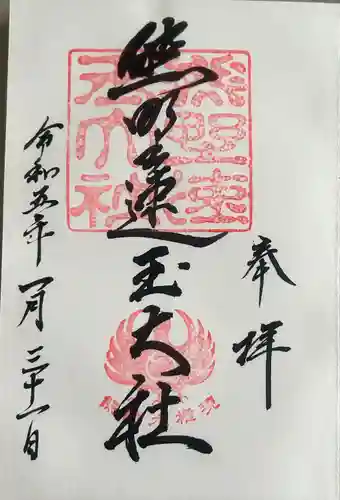 奉拝
熊野速玉大社
令和五年一月三十一日
熊野速玉大社